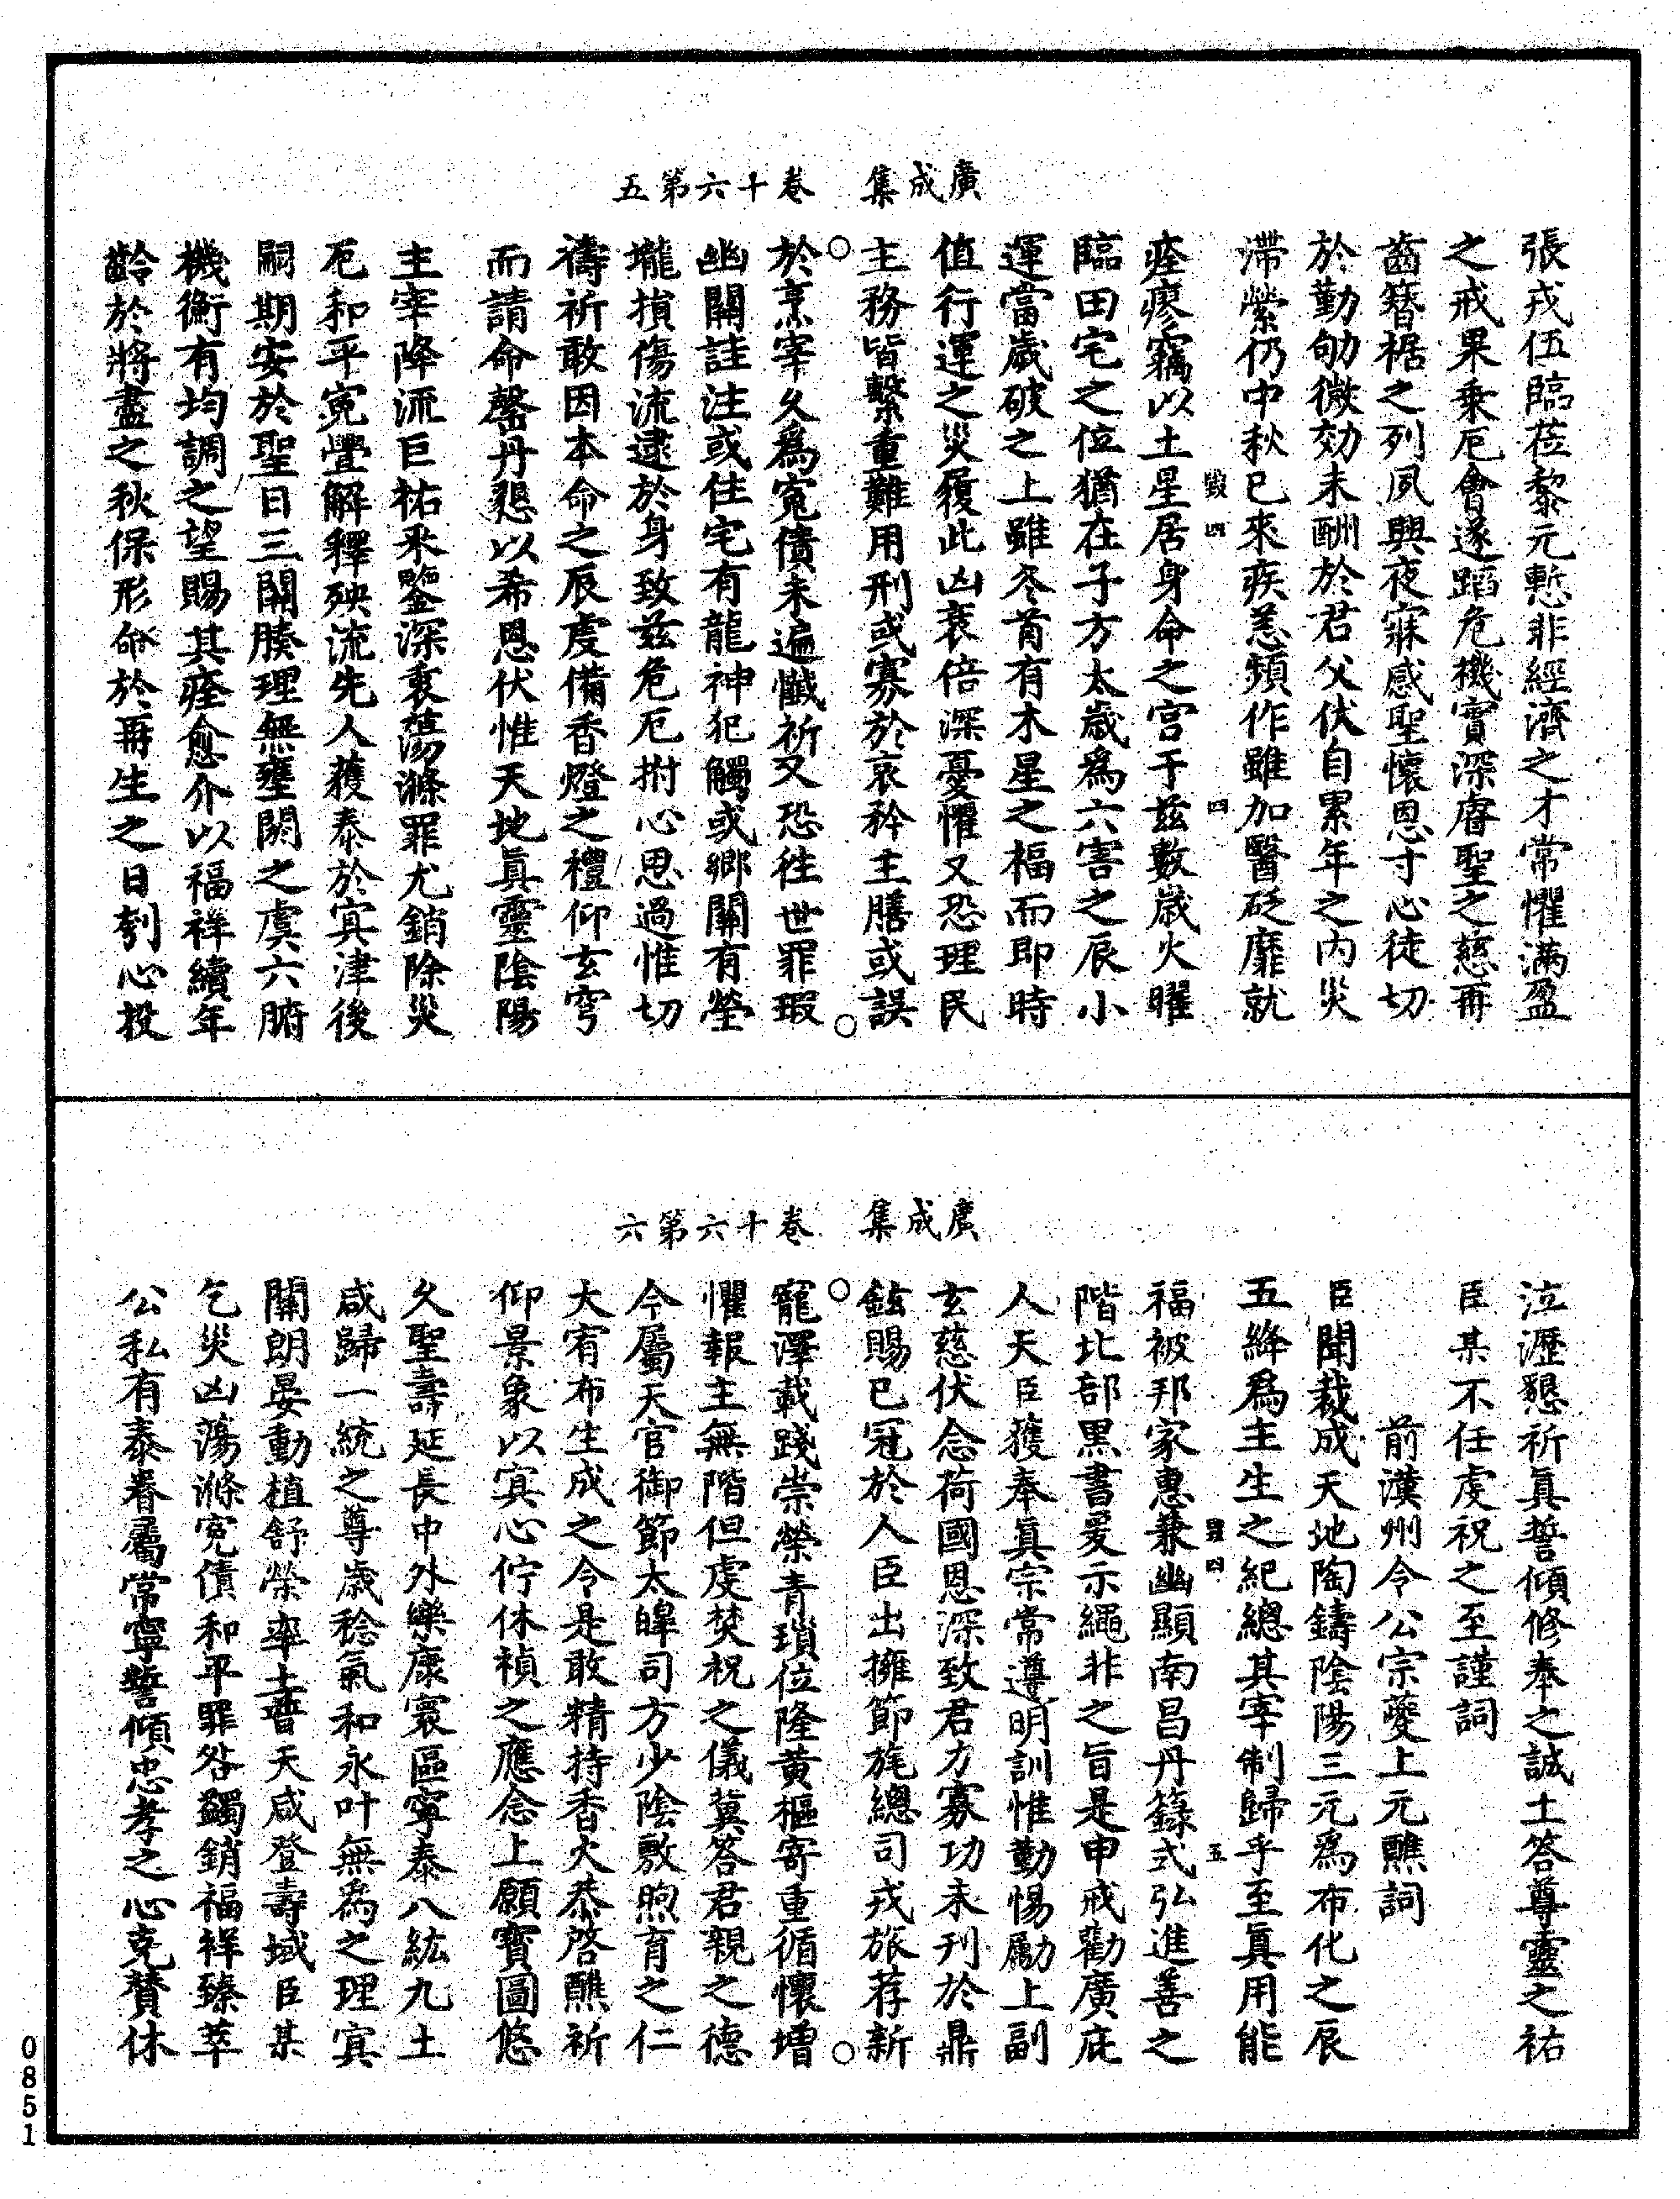 廣成集　卷十六第五
張戎伍臨莅黎元慙非經濟之才常懼滿盈
之戒果乘厄會遂蹈危機實深睿聖之慈再
齒簪裾之列夙興夜寐感聖懷恩寸心徒切
於勤劬微効未酬於君父伏自累年之內災
滯縈仍中秋已來疾恙頻作雖加醫砭靡就
痊瘳竊以土星居身命之宮于茲數歲火曜
臨田宅之位猶在子方太歲爲六害之辰小
運當歲破之上雖冬首有木星之福而即時
值行運之災履此凶衰倍深憂懼又恐理民
主務皆繫重難用刑或寡於哀矜主膳或誤
於烹宰久爲寃債未遍懺祈又恐往世罪瑕
幽關詿注或住宅有龍神犯觸或鄉關有塋
壠損傷流逮於身致茲危厄拊心思過惟切
禱祈敢因本命之辰虔備香燈之禮仰玄穹
而請命罄丹懇以希恩伏惟天地眞靈陰陽
主宰降流巨祐釆鑒深衷蕩滌罪尤銷除災
厄和平寃舋解釋殃流先人獲泰於冥津後
嗣期安於聖日三關腠理無壅閼之虞六腑
機衡有均調之望賜其痊愈介以福祥續年
齡於將盡之秋保形命於再生之日刳心投
四
四
廣成集　卷十六第六
泣瀝懇祈眞誓傾修奉之誠上答尊靈之祐
臣某不任虔祝之至謹詞
前漢州令公宗夔上元醮詞
臣聞裁成天地陶鑄陰陽三元爲布化之辰
五絳爲主生之紀總其宰制歸乎至眞用能
福被邦家惠兼幽顯南昌丹籙式弘進善之
階北部黑書爰示繩非之旨是申戒勸廣庇
人天臣獲奉眞宗常遵明訓惟勤惕勵上副
玄慈伏念荷國恩深致君力寡功未刊於鼎
鉉賜已冠於人臣出擁節旄總司戎旅荐新
寵澤載踐崇榮青瑣位隆黃樞寄重循懷增
懼報主無階但虔焚祝之儀冀答君親之德
今屬天官御節太皥司方少陰敷煦育之仁
大宥布生成之令是敢精持香火恭啓醮祈
仰景象以冥心佇休禎之應念上願寶圖悠
久聖壽延長中外樂康寰區寧泰八紘九土
咸歸一統之尊歲稔氣和永叶無爲之理冥
關朗晏動植舒榮率土普天咸登壽域臣某
乞災凶蕩滌寃債和平罪咎蠲銷福祥臻萃
公私有泰眷屬常寧誓傾忠孝之心克贊休
四
五
0851